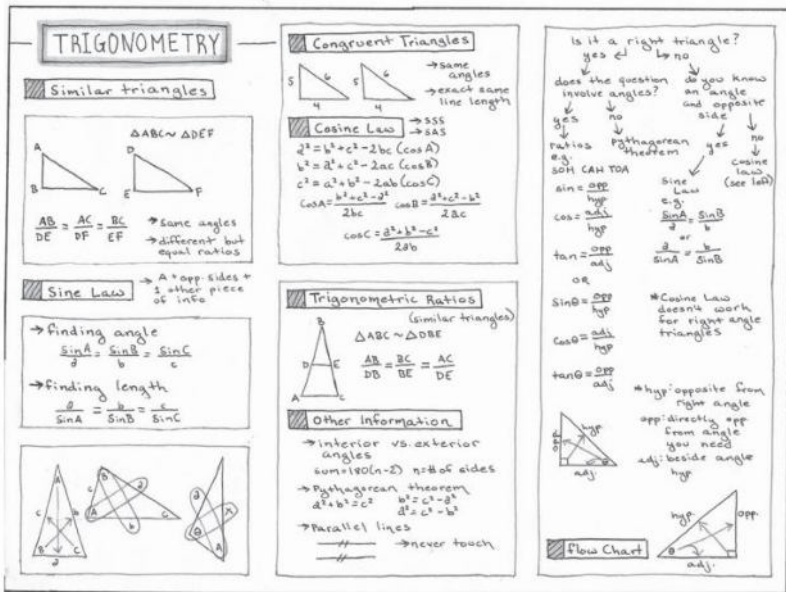 TRIGONOMETRY
Similar triangles
A
B
C
D
E
F
△ABC ~ △DEF
AB/DE = AC/DF = BC/EF
→ same angles
→ different but
equal ratios
Sine Law
→ A + opp. sides +
1 other piece
of info
→ finding angle
sinA/a = sinB/b = sinC/c
→ finding length
a/sinA = b/sinB = c/sinC
A
c
b
B
C
a
B
c
a
A
b
C
a
x
θ
A
Congruent Triangles
5
6
4
5
6
4
→ same
angles
→ exact same
line length
Cosine Law
→ SSS
→ SAS
a² = b² + c² - 2bc (cosA)
b² = a² + c² - 2ac (cosB)
c² = a² + b² - 2ab (cosC)
cosA = b² + c² - a²/2bc
cosB = a² + c² - b²/2ac
cosC = a² + b² - c²/2ab
Trigonometric Ratios
(similar triangles)
B
D
E
A
C
△ABC ~ △DBE
AB/DB = BC/BE = AC/DE
Other Information
→ interior vs. exterior
angles
sum = 180(n-2) n = # of sides
→ Pythagorean theorem
a² + b² = c²
b² = c² - a²
a² = c² - b²
→ Parallel lines
→ never touch
Is it a right triangle?
yes ↵ ↳ no
does the question
involve angles?
do you know
an angle
and opposite
side
yes
no
yes
no
ratios
e.g.
pythagorean
theorem
cosine
law
(see left)
SOH CAH TOA
sin = opp/hyp
cos = adj/hyp
tan = opp/adj
OR
sinθ = opp/hyp
cosθ = adj/hyp
tanθ = opp/adj
Sine
Law
e.g.
sinA/a = sinB/b
or
a/sinA = b/sinB
*Cosine Law
doesn't work
for right angle
triangles
*hyp: opposite from
right angle
opp: directly opp
from angle
you need
adj: beside angle
hyp
opp.
hyp.
θ
adj.
hyp.
opp.
θ
adj.
flow Chart